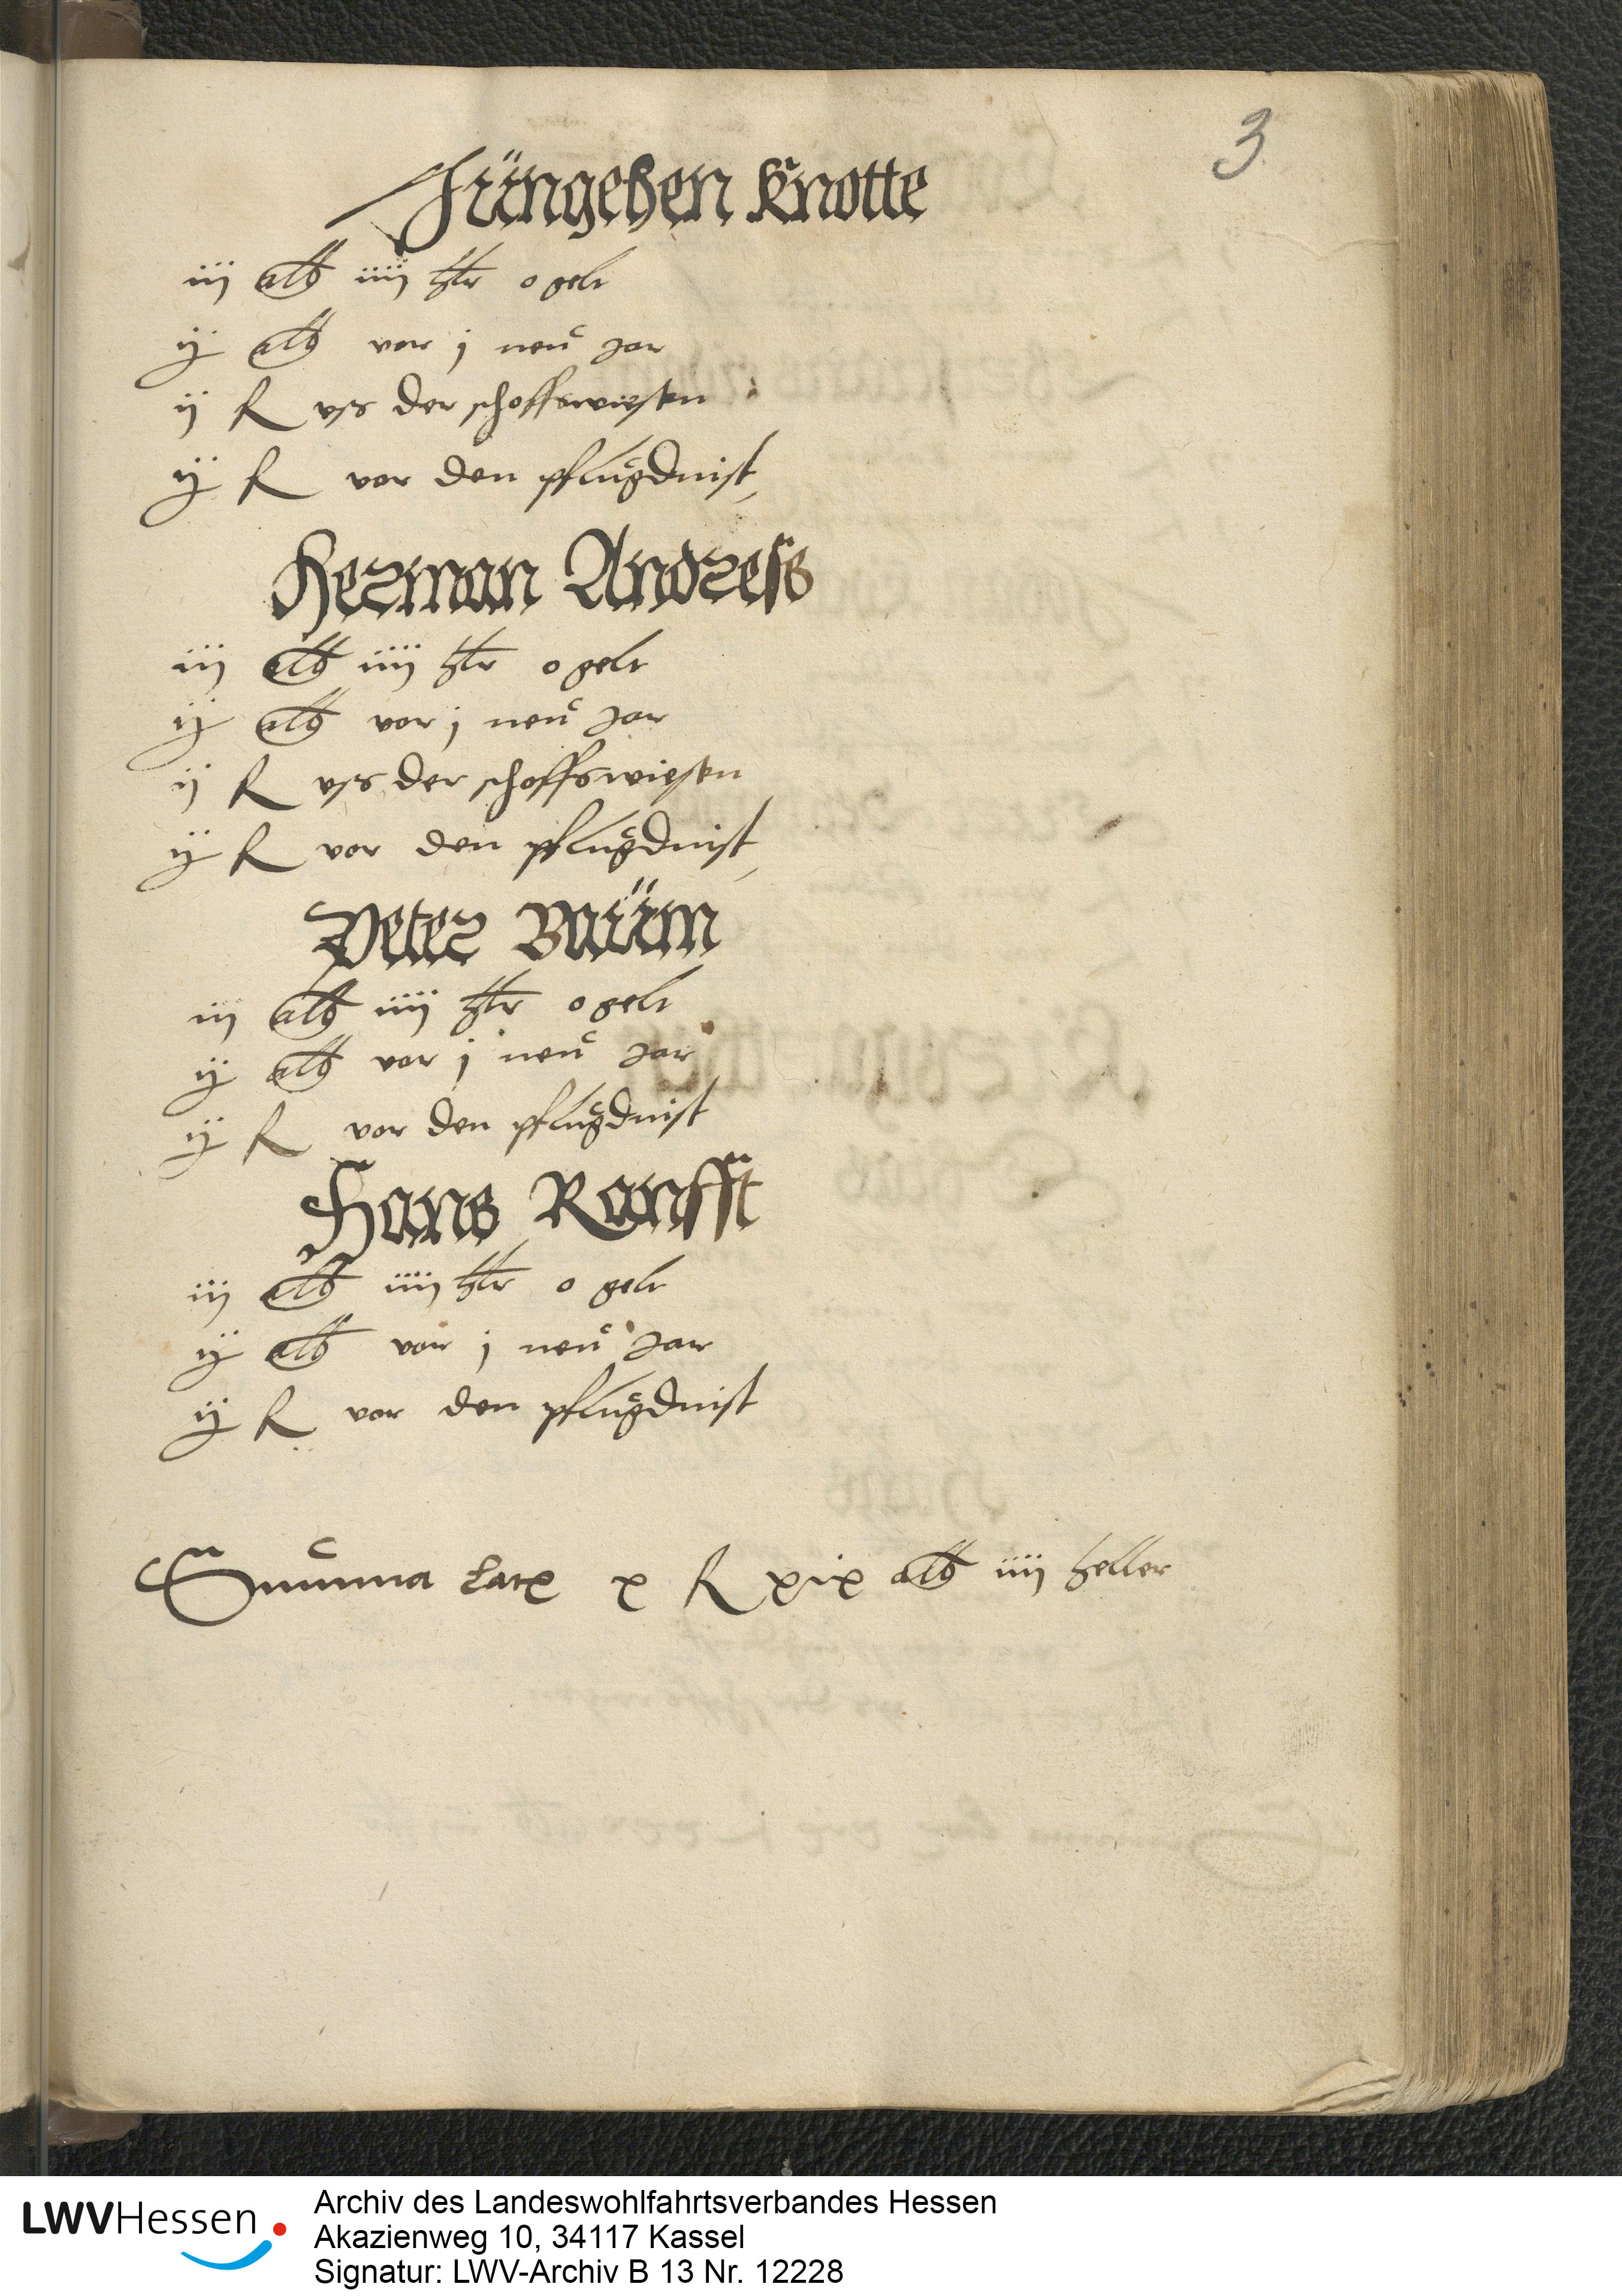 3
Jüngehen Knotte
iij alb iiij hlr o gelt
ij alb vor j neu Jar
ij fl vss der schoffswiesen
ij fl vor den pflugdnist
Herman Andress
iij alb iiij hlr o gelt
ij alb vor j neu Jar
ij fl vss der schoffswiesen
ij fl vor den pflugdnist
Peter Baum
iij alb iiij hlr o gelt
ij alb vor j neu Jar
ij fl vor den pflugdnist
Hans Ranfft
iij alb iiij hlr o gelt
ij alb vor j neu Jar
ij fl vor den pflugdnist
Summa x fl xix alb iiij heller
LWVHessen
Archiv des Landeswohlfahrtsverbandes Hessen
Akazienweg 10, 34117 Kassel
Signatur: LWV-Archiv B 13 Nr. 12228